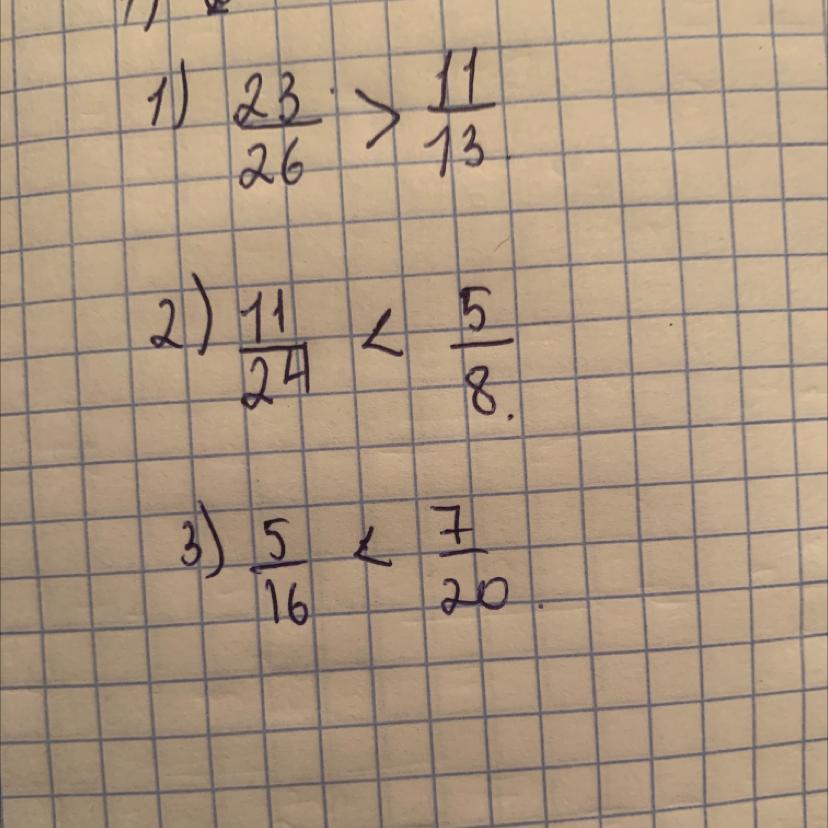 1) 23/26 > 11/13.
2) 11/24 < 5/8.
3) 5/16 < 7/20.